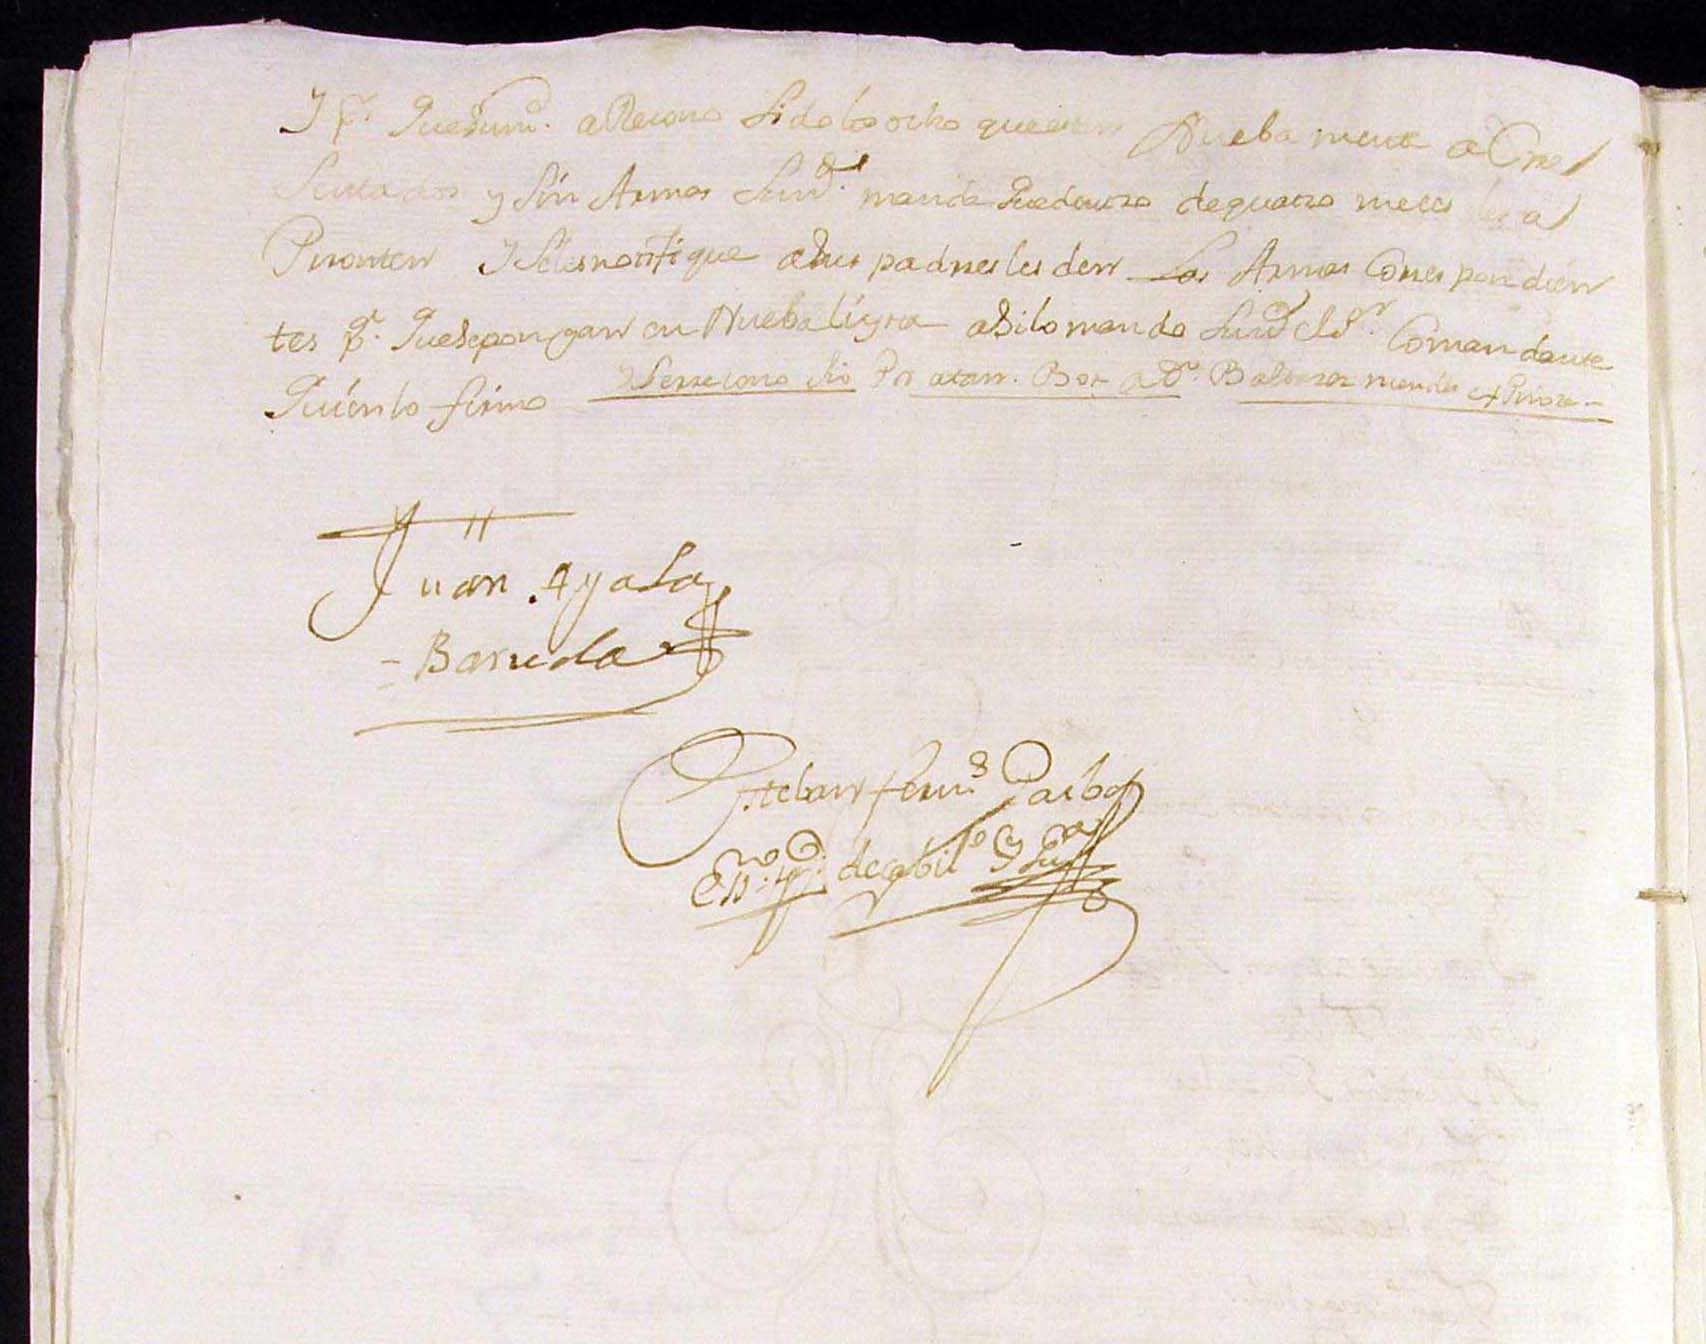 Y pr. Quesum. a Recono Sido los ocho que estan Nueba mente a Cre
Sentados y Sin Armas Sumd. manda Quedentro de quatro meses les a
Pronten Y Selesnotifique asus padres les den Las Armas Correspondien
tes pr. Quesepongan en Nueba lista asilo mando Sumd el Sr. Comandante
Quien lo firmo y Serreconosio Pr atan. Bor a Dn. Baltasar mendes
Juan Ayala
Barueda
Esteban fernz Gaibor
Esno. pco. de cabildo y Gra